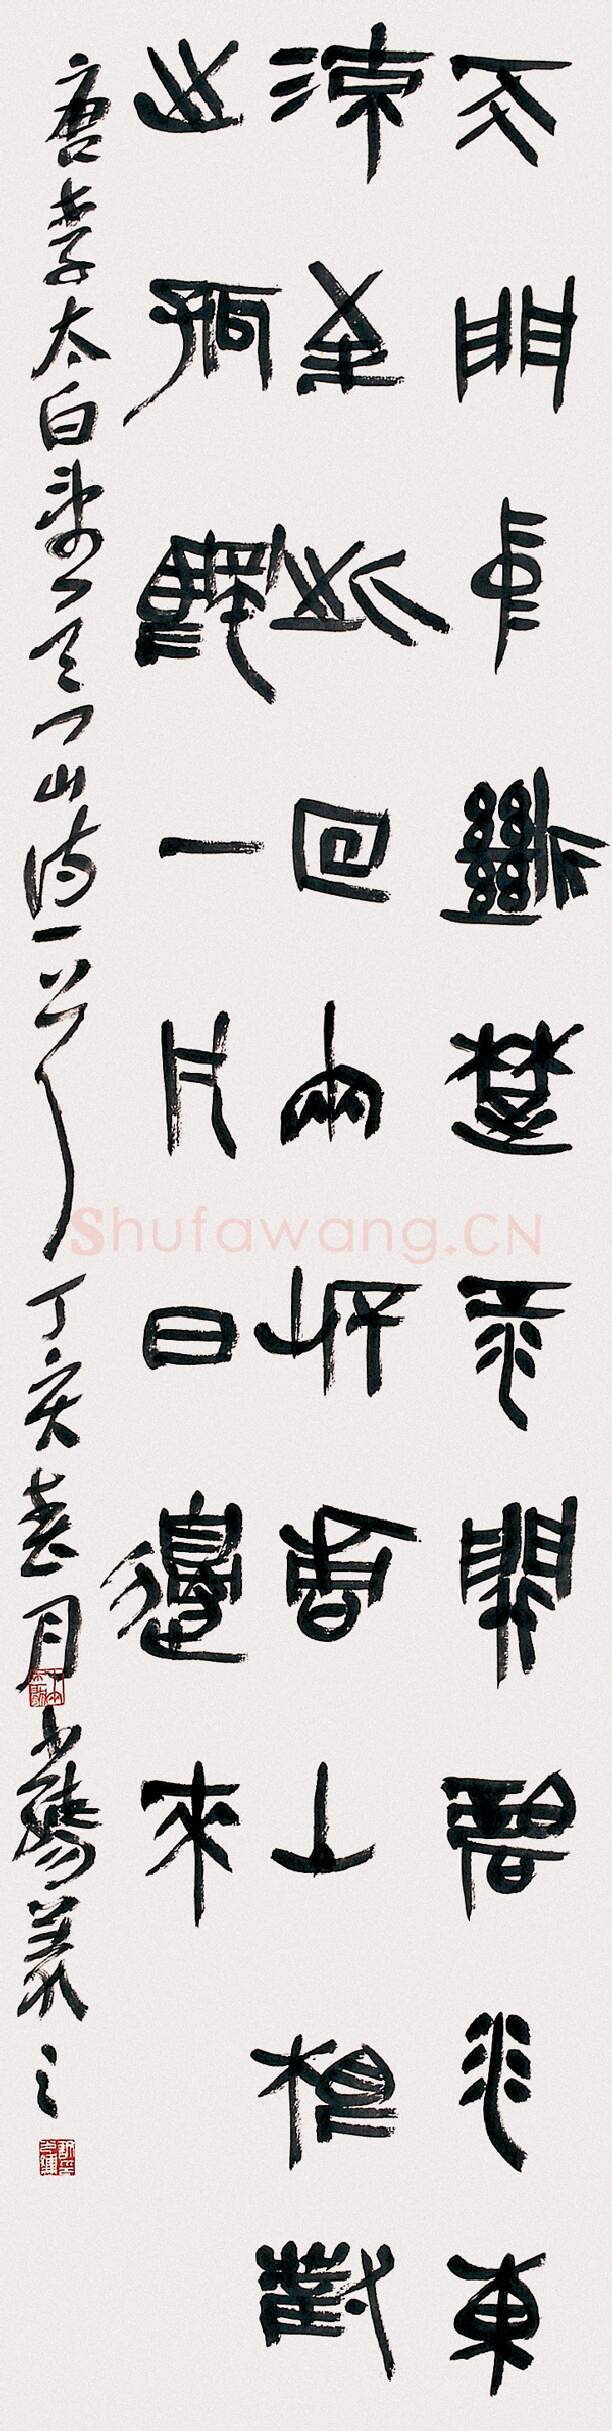 天門中斷楚江開碧水東
流至此回兩岸青山相對
出孤帆一片日邊來
唐李太白望天門山詩一首 丁亥春月
Shufawang.CN